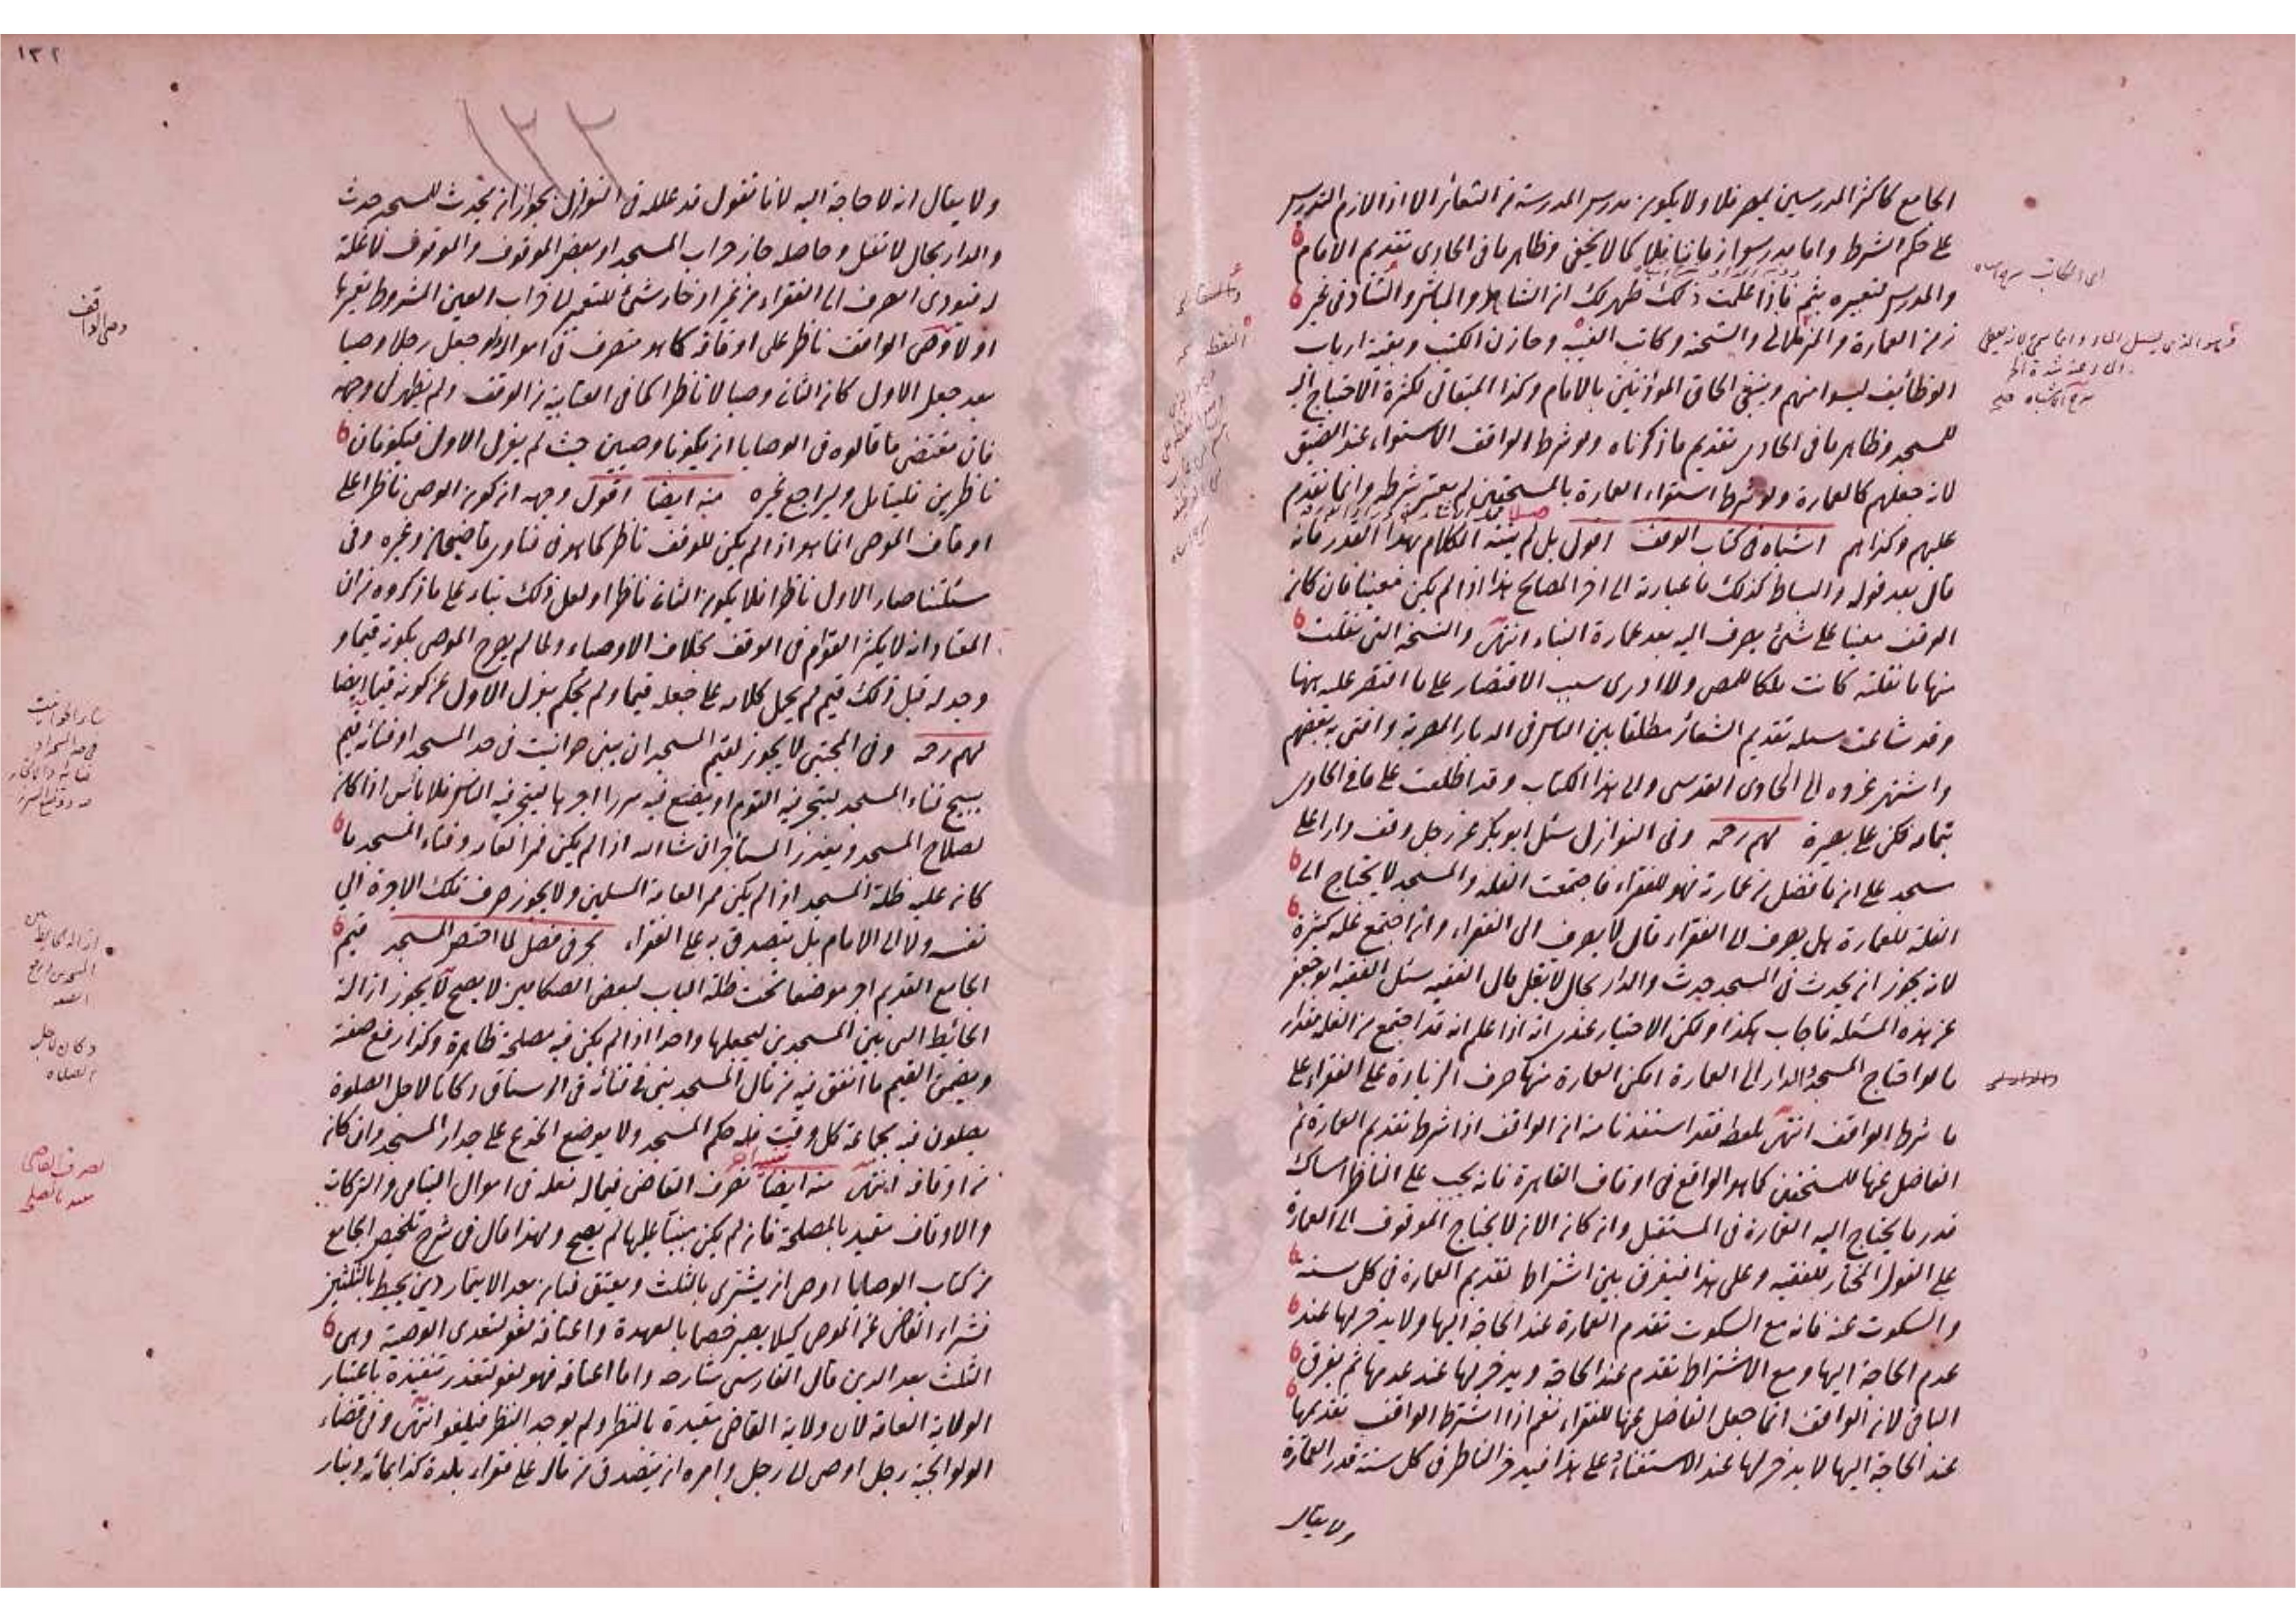 الجامع كاكثر المدرسين بمصر فلا ولا يكون مدرس المدرسة من الشعائر الا اذا لازم التدريس
على حكم الشرط واما مدرسوا زماننا فلا كما لا يخفى وظاهر ما في الحاوى تقديم الامام
والمدرس لتعبيره بثم فاذا علمت ذلك ظهر لك ان الشاهد والمباشر والشاد في غير
زمن العمارة والمزملاتى والشحنة وكاتب الغيبة وخازن الكتب وبقية ارباب
الوظائف ليسوا منهم وينبغى الحاق المؤذنين بالامام وكذا الميقاتى لكثرة الاحتياج اليه
للمسجد وظاهر ما في الحاوى تقديم ما ذكرناه ولو شرط الواقف الاستواء عند الضيق
لانه جعلهم كالعمارة ولو شرط استواء العمارة بالمستحقين لم يعتبر شرطه وانما تقدم
عليهم وكذا هم اشباه في كتاب الوقف اقول بل لم ينته الكلام بهذا القدر فانه
قال بعد قوله والبساط كذلك ما عبارته الى اخر المصالح هذا اذا لم يكن معينا فان كان
الوقف معينا على شئ يصرف اليه بعد عمارة البناء انتهى والنسخة التى نقلت
منها ما نقلته كانت ملكا للمص ولا ادرى سبب الاقتصار على ما اقتصر عليه هنا
وقد شاعت مسئله تقديم الشعائر مطلقا بين الناس في الديار المصرية وافتى به بعضهم
واشتهر عزوه الى الحاوى القدسى والى هذا الكتاب وقد اطلعت على ما في الحاوى
بتمامه فكن على بصيرة وفى النوازل سئل ابو بكر عن رجل وقف دارا على
مسجد على ان ما فضل من عمارته فهو للفقراء فاجتمعت الغله والمسجد لا يحتاج الى
الغلة للعمارة هل يصرف الى الفقراء قال لا يصرف الى الفقراء وان اجتمع غله كثيرة
لانه يجوز ان يحدث في المسجد حدث والدار بحال لا يغل قال الفقيه سئل الفقيه ابو جعفر
عن هذه المسئله فاجاب هكذا ولكن الاختيار عندى انه اذا علم انه قد اجتمع من الغله مقدار
ما لو احتاج المسجد والدار الى العمارة امكن العمارة منها صرف الزيادة على الفقراء على
ما شرط الواقف انتهى بلفظه فقد استفدنا منه ان الواقف اذا شرط تقديم العمارة ثم
الفاضل عنها للمستحقين كما هو الواقع في اوقاف القاهرة فانه يجب على الناظر امساك
قدر ما يحتاج اليه العمارة في المستقبل وان كان الان لا يحتاج الموقوف الى العمارة
على القول المختار للفقيه وعلى هذا فيفرق بين اشتراط تقديم العمارة في كل سنه
والسكوت عنه فانه مع السكوت تقدم العمارة عند الحاجة اليها ولا يدخر لها عند
عدم الحاجة اليها ومع الاشتراط تقدم عند الحاجة ويدخر لها عند عدمها ثم يفرق
الباقى لان الواقف انما جعل الفاضل عنها للفقراء نعم اذا اشترط الواقف تقديمها
عند الحاجة اليها لا يدخر لها عند الاستغناء وعلى هذا فيدخر الناظر في كل سنة قدر العمارة
ولا يقال
١٣٢
١٢٢
ولا يقال انه لا حاجة اليه لانا نقول قد علله في النوازل بجواز ان يحدث للمسجد حدث
والدار بحال لا تغل وحاصله جاز خراب المسجد او بعض الموقوف والموقوف لا غلة
له فيودى الصرف الى الفقراء من غير ادخار شئ للتعمير الى خراب العين المشروط تعميرها
اولا وصى الواقف ناظر على اوقافه كما هو متصرف في امواله ولو جعل رجلا وصيا
بعد جعل الاول كان الثانى وصيا لا ناظرا كما في العتابية من الوقف ولم يظهر لى وجهه
فان مقتضى ما قالوه في الوصايا ان يكونا وصيين حيث لم يعزل الاول فيكونان
ناظرين فليتامل وليراجع غيره منه ايضا اقول وجهه ان كون الوصى ناظرا على
اوقاف الموصى انما هو اذا لم يكن للوقف ناظر كما هو في فتاوى قاضيخان وغيره وفى
مسئلتنا صار الاول ناظرا فلا يكون الثانى ناظرا ولعل ذلك بناء على ما ذكروه من ان
المعتاد انه لا يكثر القوام في الوقف بخلاف الاوصياء ولما لم يصرح الموصى بكونه قيما و
وجد له قبل ذلك قيم لم يحمل كلامه على جعله قيما ولم يحكم بعزل الاول عن كونه قيما ايضا
وفى المجتبى لا يجوز لقيم المسجد ان يبنى حوانيت في حد المسجد او فنائه قيم
يبيح فناء المسجد ليتجر فيه القوم او يضع فيه سررا اجرها ليتجر فيه الناس فلا باس اذا كان
لصلاح المسجد ويعذر المستأجر ان شاء الله اذا لم يكن ممر العامة وفناء المسجد ما
كان عليه ظلة المسجد اذا لم يكن ممر العامة المسلمين ولا يجوز صرف تلك الاجرة الى
نفسه ولا الى الامام بل يتصدق به على الفقراء بحر في فصل لما اختص المسجد قيم
الجامع القديم اجر موضعا تحت ظلة الباب لبعض الصكاكين لا يصح لا يجوز ازالة
الحائط التى بين المسجدين ليجعلها واحدا اذا لم يكن فيه مصلحة ظاهرة وكذا رفع صفته
ويضمن القيم ما انفق فيه من مال المسجد بنى في فنائه في الرستاق دكانا لاجل الصلوة
يصلون فيه بجماعة كل وقت فله حكم المسجد ولا يوضع الجذع على جدار المسجد وان كان
من اوقافه انتهى منه ايضا تصرف القاضى فيما له فعله في اموال اليتامى والتركات
والاوقاف مقيد بالمصلحة فان لم يكن مبنيا عليها لم يصح ولهذا قال في شرح تلخيص الجامع
من كتاب الوصايا اوصى ان يشترى بالثلث ويعتق فبان بعد الايتمار دين يحيط بالثلثين
فشراء القاضى عن الموصى كيلا يصير خصما بالعهدة واعتاقه لغو لتعدى الوصية وهى
الثلث بعد الدين قال الفارسى شارحه واما اعتاقه فهو لغو لتعذر تنفيذه باعتبار
الولاية العامة لان ولاية القاضى مقيدة بالنظر ولم يوجد النظر فيلغو انتهى وفى قضاء
الولوالجية رجل اوصى الى رجل وامره ان يتصدق من ماله على فقراء بلدة كذا بمائة دينار
وصى الواقف
تصرف القاضى
مقيد بالمصلحة